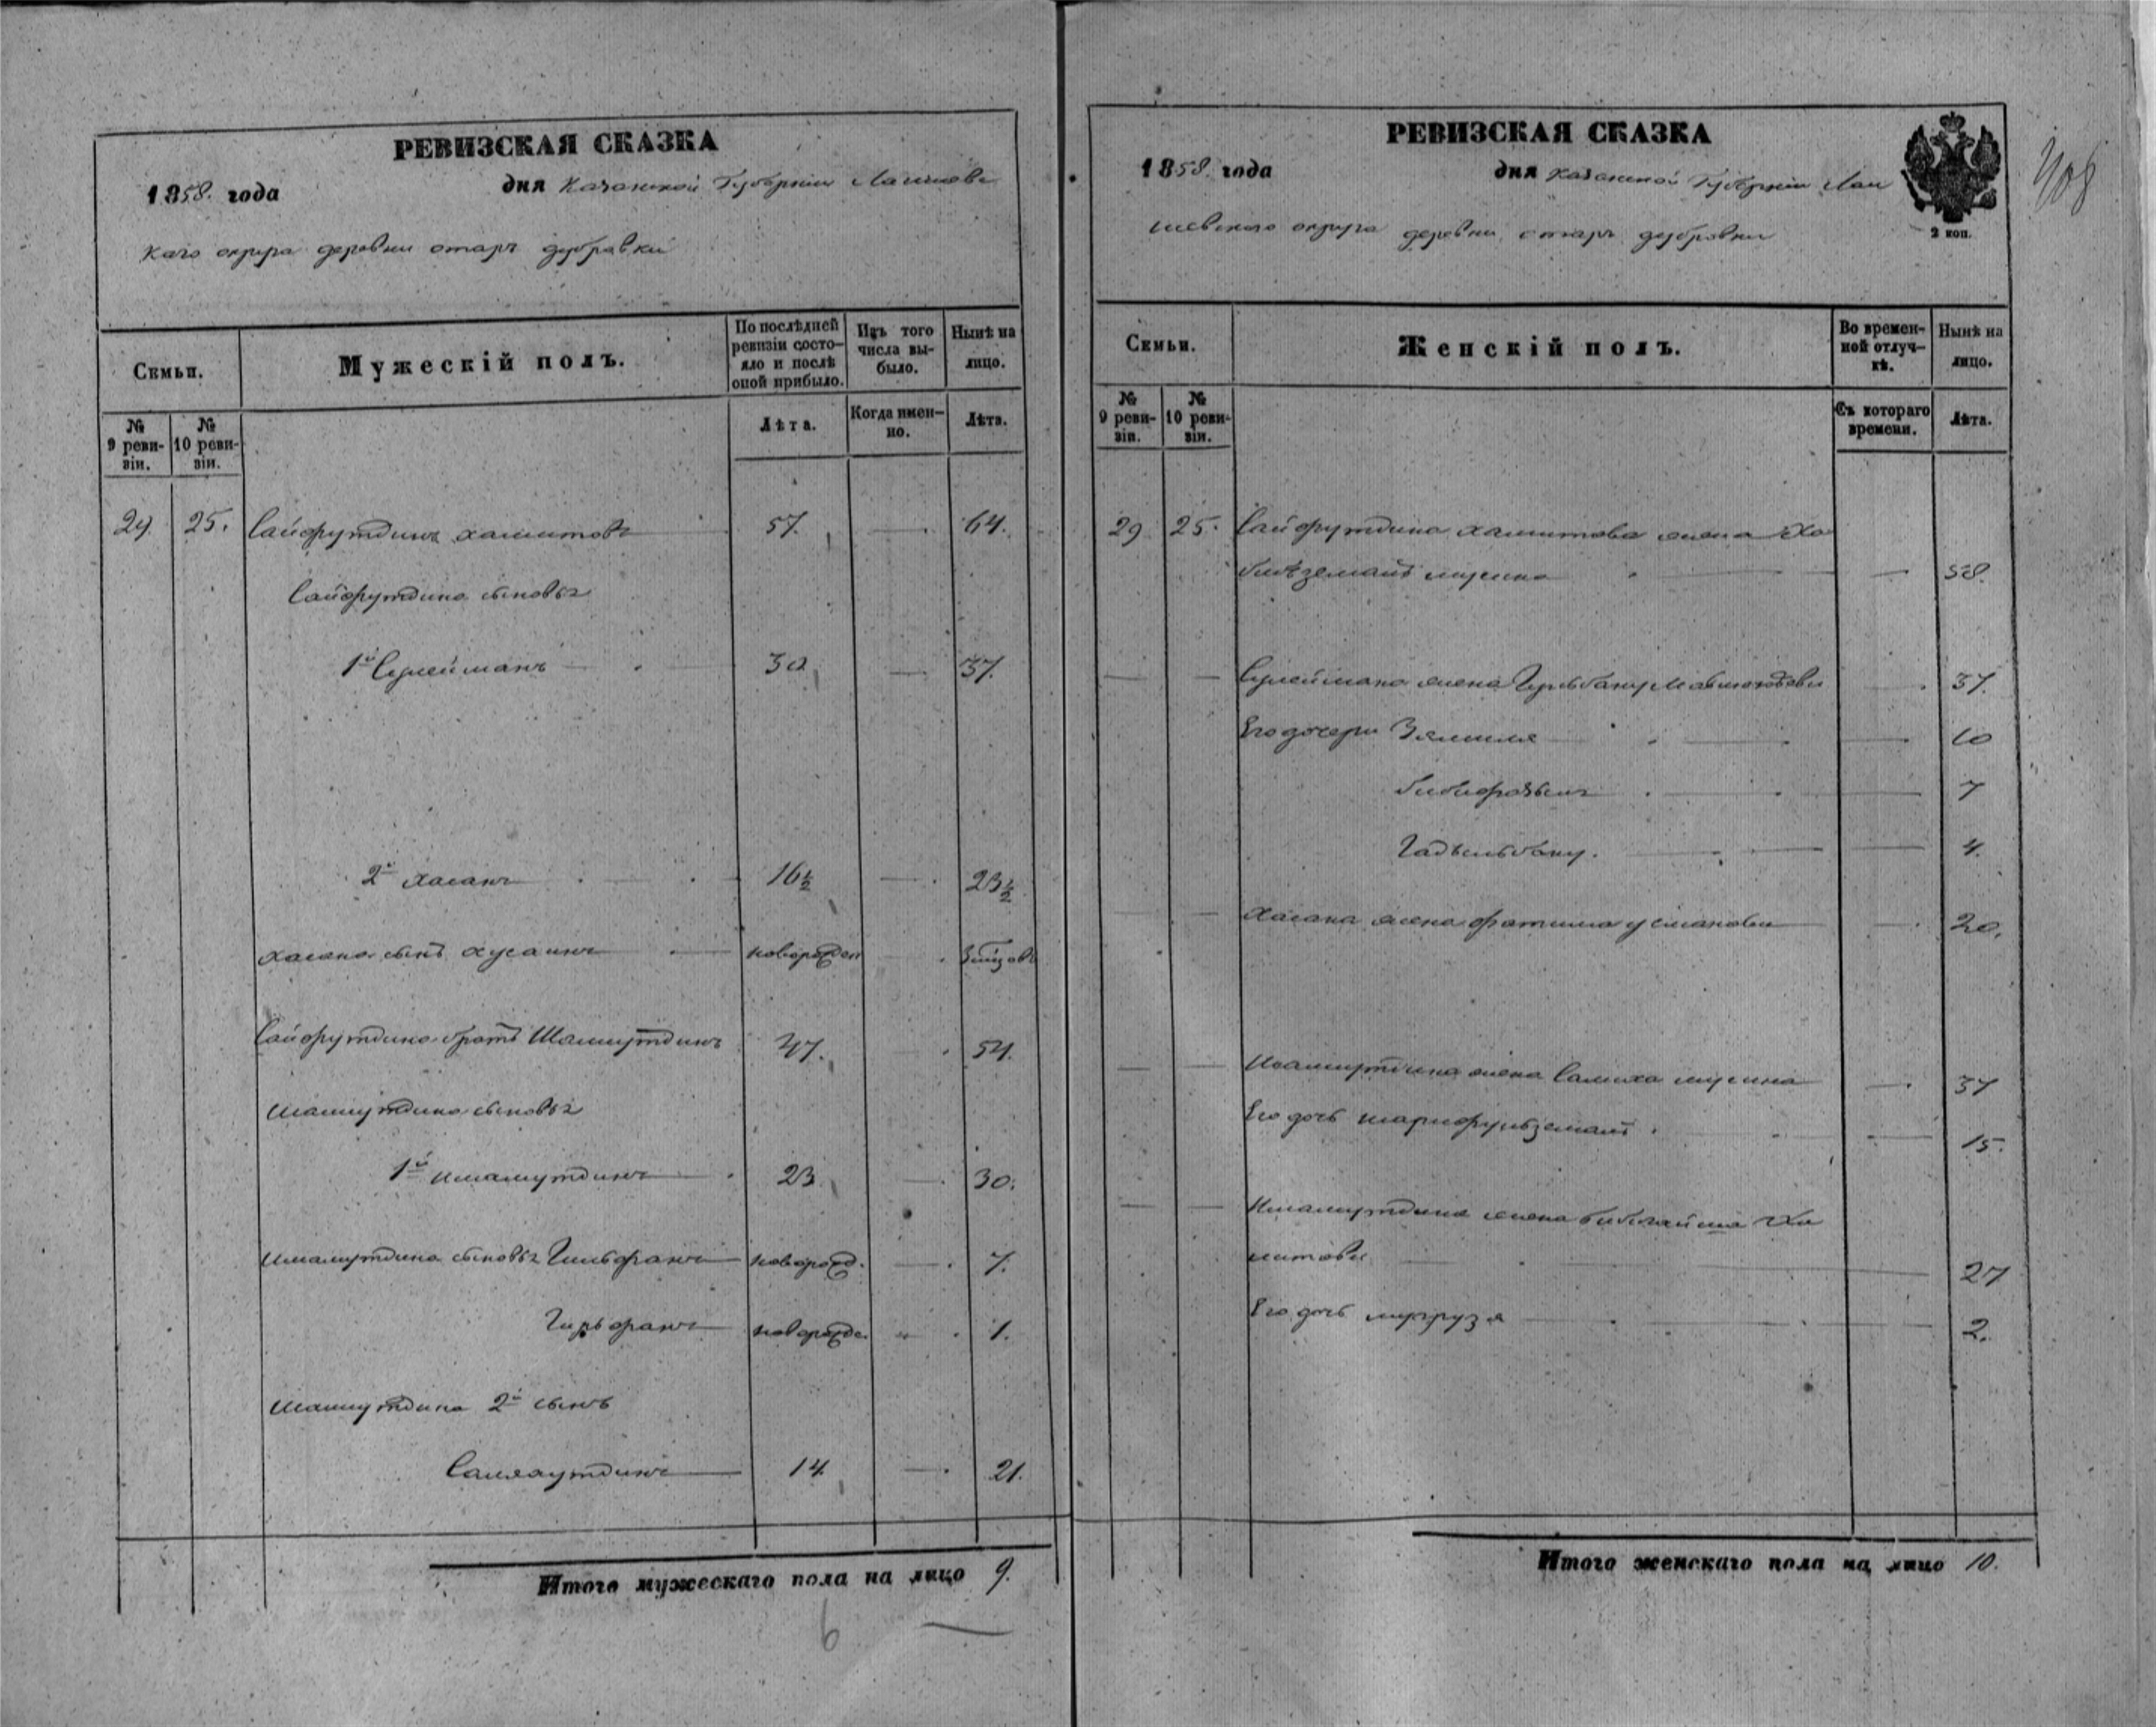 РЕВИЗСКАЯ СКАЗКА
1858. года дня Казанской Губернии Лаишевс
каго округа деревни старъ дубровки
Семьи.
Мужескій полъ.
По послѣдней ревизіи состояло и послѣ оной прибыло.
Изъ того числа выбыло.
Нынѣ на лицо.
№ 9 ревизіи.
№ 10 ревизіи.
Лѣта.
Когда именно.
Лѣта.
29 25. Сайфутдинъ Хамитовъ 57. 64.
Сайфутдина сыновья
1й Сулейманъ 30 37.
2й Хасанъ 16½ 23½
Хасана сынъ Хусаинъ новорожден
Сайфутдина братъ Шамсутдинъ 47. 54.
Шамсутдина сыновья
1й Имамутдинъ 23 30.
Имамутдина сыновья новорожд. 7.
новорожде. 1.
Шамсутдина 2й сынъ
14 21.
Итого мужескаго пола на лицо 9.
6
РЕВИЗСКАЯ СКАЗКА
1858. года дня Казанской Губернии Лаи
шевскаго округа деревни старъ дубровки
2 коп.
408
Семьи.
Женскій полъ.
Во временной отлучкѣ.
Нынѣ на лицо.
№ 9 ревизіи.
№ 10 ревизіи.
Съ котораго времени.
Лѣта.
29 25. Сайфутдина Хамитова жена Ха
мусина 58.
Сулеймана жена 37.
Его дочери 10
7
4.
Хасана жена Фатима усманова 20.
Шамсутдина жена Салиха мусина 37
Его дочь 15.
Имамутдина жена Бибигайша Ха
митова 27
Его дочь 2.
Итого женскаго пола на лицо 10.